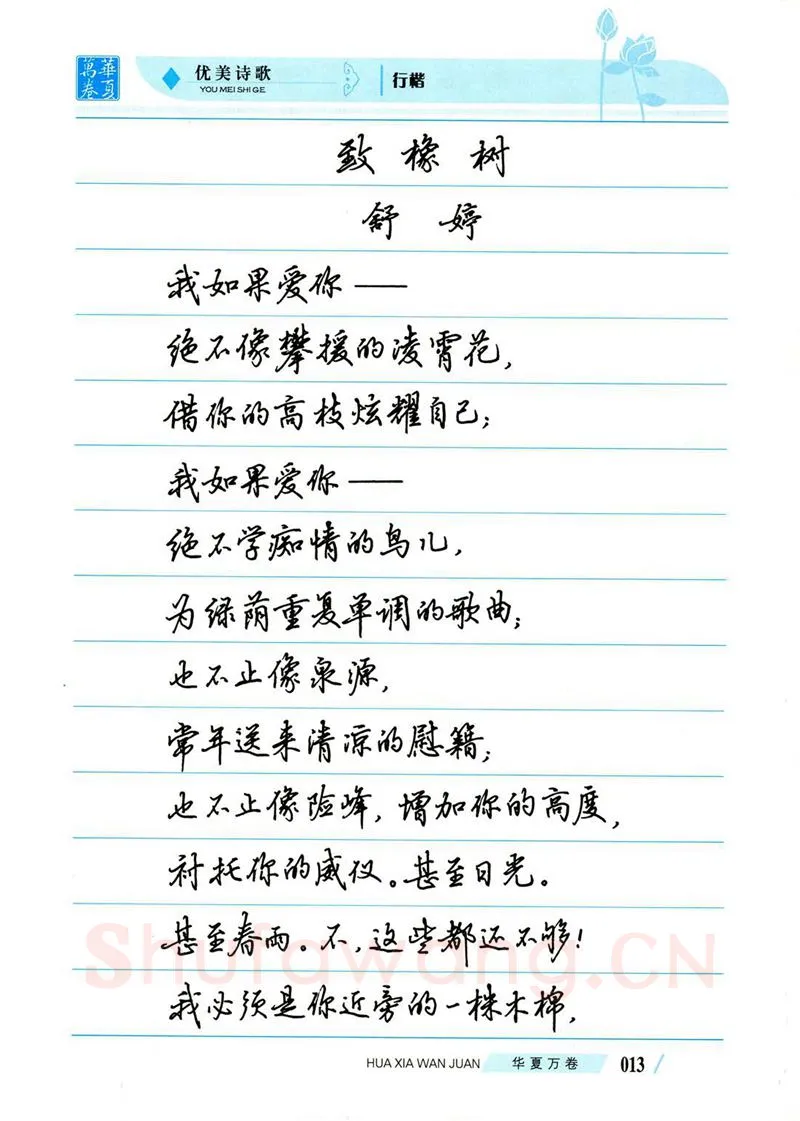 華夏萬卷
优美诗歌
YOU MEI SHI GE
行楷
致橡树
舒婷
我如果爱你——
绝不像攀援的凌霄花，
借你的高枝炫耀自己；
我如果爱你——
绝不学痴情的鸟儿，
为绿荫重复单调的歌曲；
也不止像泉源，
常年送来清凉的慰籍；
也不止像险峰，增加你的高度，
衬托你的威仪。甚至日光。
甚至春雨。不，这些都还不够！
我必须是你近旁的一株木棉，
Shufawang.CN
HUA XIA WAN JUAN
华夏万卷
013